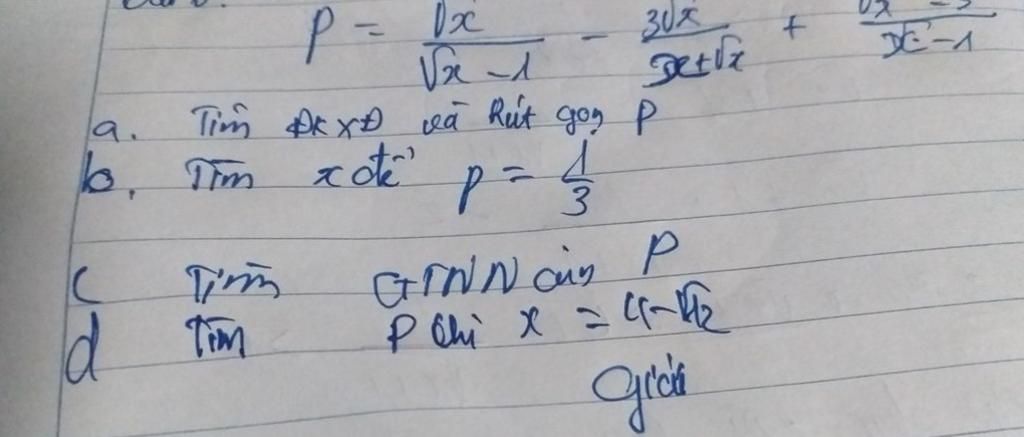 P = \frac{\sqrt{x}}{\sqrt{x} - 1} - \frac{3\sqrt{x}}{x + \sqrt{x}} + \frac{\sqrt{x} - 3}{x - 1}
a. Tìm ĐKXĐ và Rút gọn P
b. Tìm x để P = \frac{1}{3}
c Tìm GTNN của P
d Tìm P khi x = 4 - \sqrt{12}
Giải